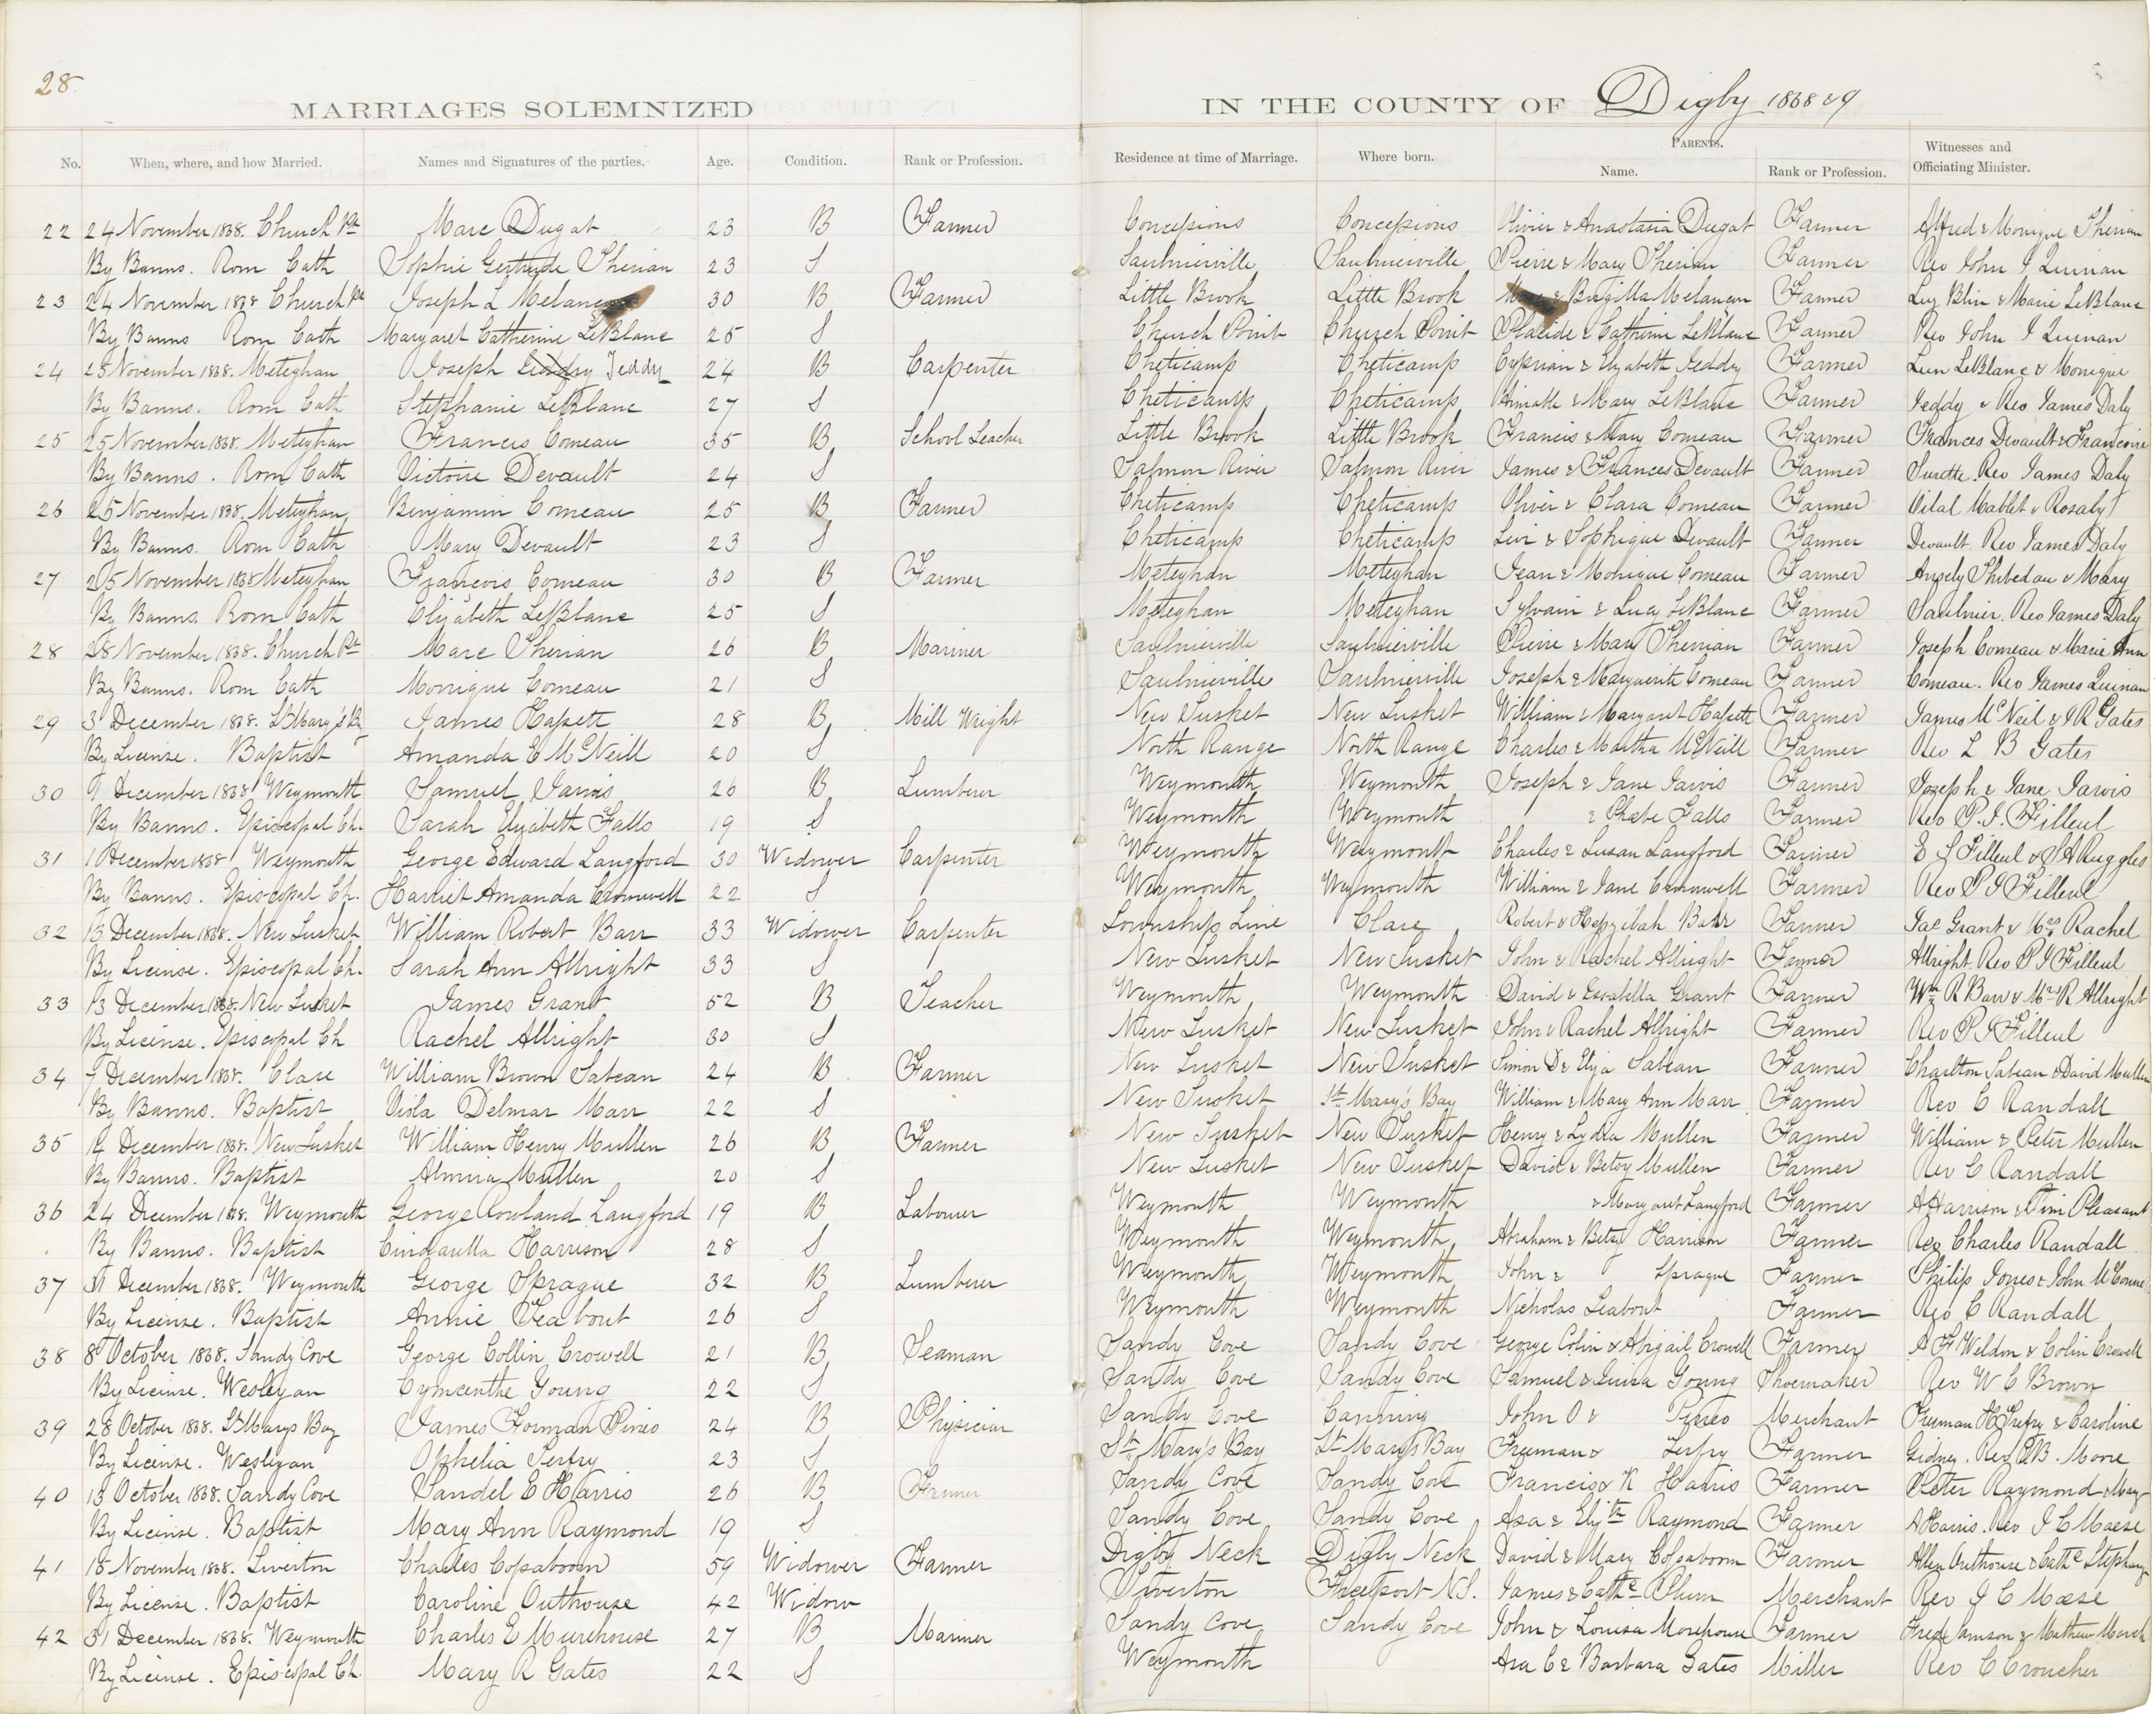 28.
MARRIAGES SOLEMNIZED IN THE COUNTY OF Digby 1868 & 9
No. When, where, and how Married. Names and Signatures of the parties. Age. Condition. Rank or Profession. Residence at time of Marriage. Where born. PARENTS. Name. Rank or Profession. Witnesses and Officiating Minister.
22 24 November 1868. Church Pt Marc Dugat 23 B Farmer Concessions Concessions Olivier & Anastasia Dugat Farmer Alfred & Monique Therian
By Banns. Rom Cath Sophie Gertrude Therian 23 S Saulnierville Saulnierville Pierre & Mary Therian Farmer Rev John J Quinan
23 24 November 1868 Church Pt Joseph L Melancon 30 B Farmer Little Brook Little Brook & Brigitta Melancon Farmer Luz Blin & Marie LeBlanc
By Banns Rom Cath Margaret Catherine LeBlanc 25 S Church Point Church Point Placide & Catherine LeBlanc Farmer Rev John J Quinan
24 25 November 1868. Meteghan Joseph Jeddry 24 B Carpenter Cheticamp Cheticamp Cyprian & Elizabeth Jeddry Farmer LeBlanc & Monique
By Banns. Rom Cath Stephanie LeBlanc 27 S Cheticamp Cheticamp & Mary LeBlanc Farmer Jeddy & Rev James Daly
25 25 November 1868. Meteghan Francis Comeau 35 B School Teacher Little Brook Little Brook Francis & Mary Comeau Farmer Frances Devault & Francoise
By Banns. Rom Cath Victoire Devault 24 S Salmon River Salmon River James & Frances Devault Farmer Surette. Rev James Daly
26 25 November 1868. Meteghan Benjamin Comeau 25 B Farmer Cheticamp Cheticamp Oliver & Clara Comeau Farmer Vital Mablet & Rosaly
By Banns. Rom Cath Mary Devault 23 S Cheticamp Cheticamp Levi & Sophique Devault Farmer Devault Rev James Daly
27 25 November 1868 Meteghan Francois Comeau 30 B Farmer Meteghan Meteghan Jean & Monique Comeau Farmer Thibedau & Mary
By Banns. Rom Cath Elizabeth LeBlanc 25 S Meteghan Meteghan Sylvain & Lucy LeBlanc Farmer Saulnier. Rev James Daly
28 28 November 1868. Church Pt Marc Therian 26 B Mariner Saulnierville Saulnierville Pierre & Mary Therian Farmer Joseph Comeau & Marie Ann
By Banns. Rom Cath Monique Comeau 21 S Saulnierville Saulnierville Joseph & Marguerite Comeau Farmer Comeau. Rev James Quinan
29 3 December 1868. St Mary's By James Hassett 28 B Mill Wright New Tusket New Tusket William & Margaret Hassett Farmer James McNeil & J R Gates
By License. Baptist Amanda E McNeill 20 S North Range North Range Charles & Martha McNeill Farmer Rev L B Gates
30 9 December 1868 Weymouth Samuel Jarvis 26 B Lumberer Weymouth Weymouth Joseph & Jane Jarvis Farmer Joseph & Jane Jarvis
By Banns. Episcopal Ch. Sarah Elizabeth Falls 19 S Weymouth Weymouth & Phebe Falls Farmer Rev P. J. Filleul
31 1 December 1868 Weymouth George Edward Langford 30 Widower Carpenter Weymouth Weymouth Charles & Susan Langford Farmer E S Filleul & J A Ruggles
By Banns. Episcopal Ch. Harriet Amanda Cromwell 22 S Weymouth Weymouth William & Jane Cromwell Farmer Rev P J Filleul
32 13 December 1868. New Tusket William Robert Barr 33 Widower Carpenter Township Line Clare Robert & Hepzibah Barr Farmer Jas Grant & Mrs Rachel
By License. Episcopal Ch. Sarah Ann Allright 33 S New Tusket New Tusket John & Rachel Allright Farmer Allright. Rev P J Filleul
33 13 December 1868. New Tusket James Grant 52 B Teacher Weymouth Weymouth David & Isabella Grant Farmer Wm R Barr & Mrs R Allright
By License. Episcopal Ch Rachel Allright 30 S New Tusket New Tusket John & Rachel Allright Farmer Rev P J Filleul
34 7 December 1868. Clare William Brown Sabean 24 B Farmer New Tusket New Tusket Simon D & Eliza Sabean Farmer Charlton Sabean & David Mullen
By Banns. Baptist Viola Delmar Marr 22 S New Tusket St Mary's Bay William & Mary Ann Marr Farmer Rev C Randall
35 14 December 1868. New Tusket William Henry Mullen 26 B Farmer New Tusket New Tusket Henry & Lydia Mullen Farmer William & Peter Mullen
By Banns. Baptist Almira Mullen 20 S New Tusket New Tusket David & Betsy Mullen Farmer Rev C Randall
36 24 December 1868. Weymouth George Rowland Langford 19 B Labourer Weymouth Weymouth & Margaret Langford Farmer A Harrison & Tim Pleasant
By Banns. Baptist Cindarella Harrison 28 S Weymouth Weymouth Abraham & Betsy Harrison Farmer Rev Charles Randall
37 31 December 1868. Weymouth George Sprague 32 B Lumberer Weymouth Weymouth John & Sprague Farmer Philip Jones & John McConnel
By License. Baptist Annie Seabout 26 S Weymouth Weymouth Nicholas Seabout Farmer Rev C Randall
38 8 October 1868. Sandy Cove George Collin Crowell 21 B Seaman Sandy Cove Sandy Cove George Colin & Abigail Crowell Farmer A F Weldon & Colin Crowell
By License. Wesleyan Cymanthe Young 22 S Sandy Cove Sandy Cove Samuel & Young Shoemaker Rev W C Brown
39 28 October 1868. St Marys Bay James Forman Pineo 24 B Physician Sandy Cove Canning John O & Pineo Merchant Freeman H Trefry & Caroline
By License. Wesleyan Ophelia Terfry 23 S St Mary's Bay St Mary's Bay Freeman & Terfry Farmer Gidney. Rev E B. Moore
40 13 October 1868. Sandy Cove Sandel E Harris 26 B Farmer Sandy Cove Sandy Cove Francis & K Harris Farmer Peter Raymond & Mary
By License. Baptist Mary Ann Raymond 19 S Sandy Cove Sandy Cove Asa & Elizth Raymond Farmer A Harris. Rev J C Morse
41 18 November 1868. Tiverton Charles Cossaboom 59 Widower Farmer Digby Neck Digby Neck David & Mary Cossaboom Farmer Allen Outhouse & Cathe Stephany
By License. Baptist Caroline Outhouse 42 Widow Tiverton Freeport N.S. James & Cathe Thurn Merchant Rev J C Morse
42 31 December 1868. Weymouth Charles E Murehouse 27 B Mariner Sandy Cove Sandy Cove John & Louisa Morehouse Farmer Fredk Jamson & Mathew March
By License. Episcopal Ch. Mary R Gates 22 S Weymouth Asa C & Barbara Gates Miller Rev C Croucher